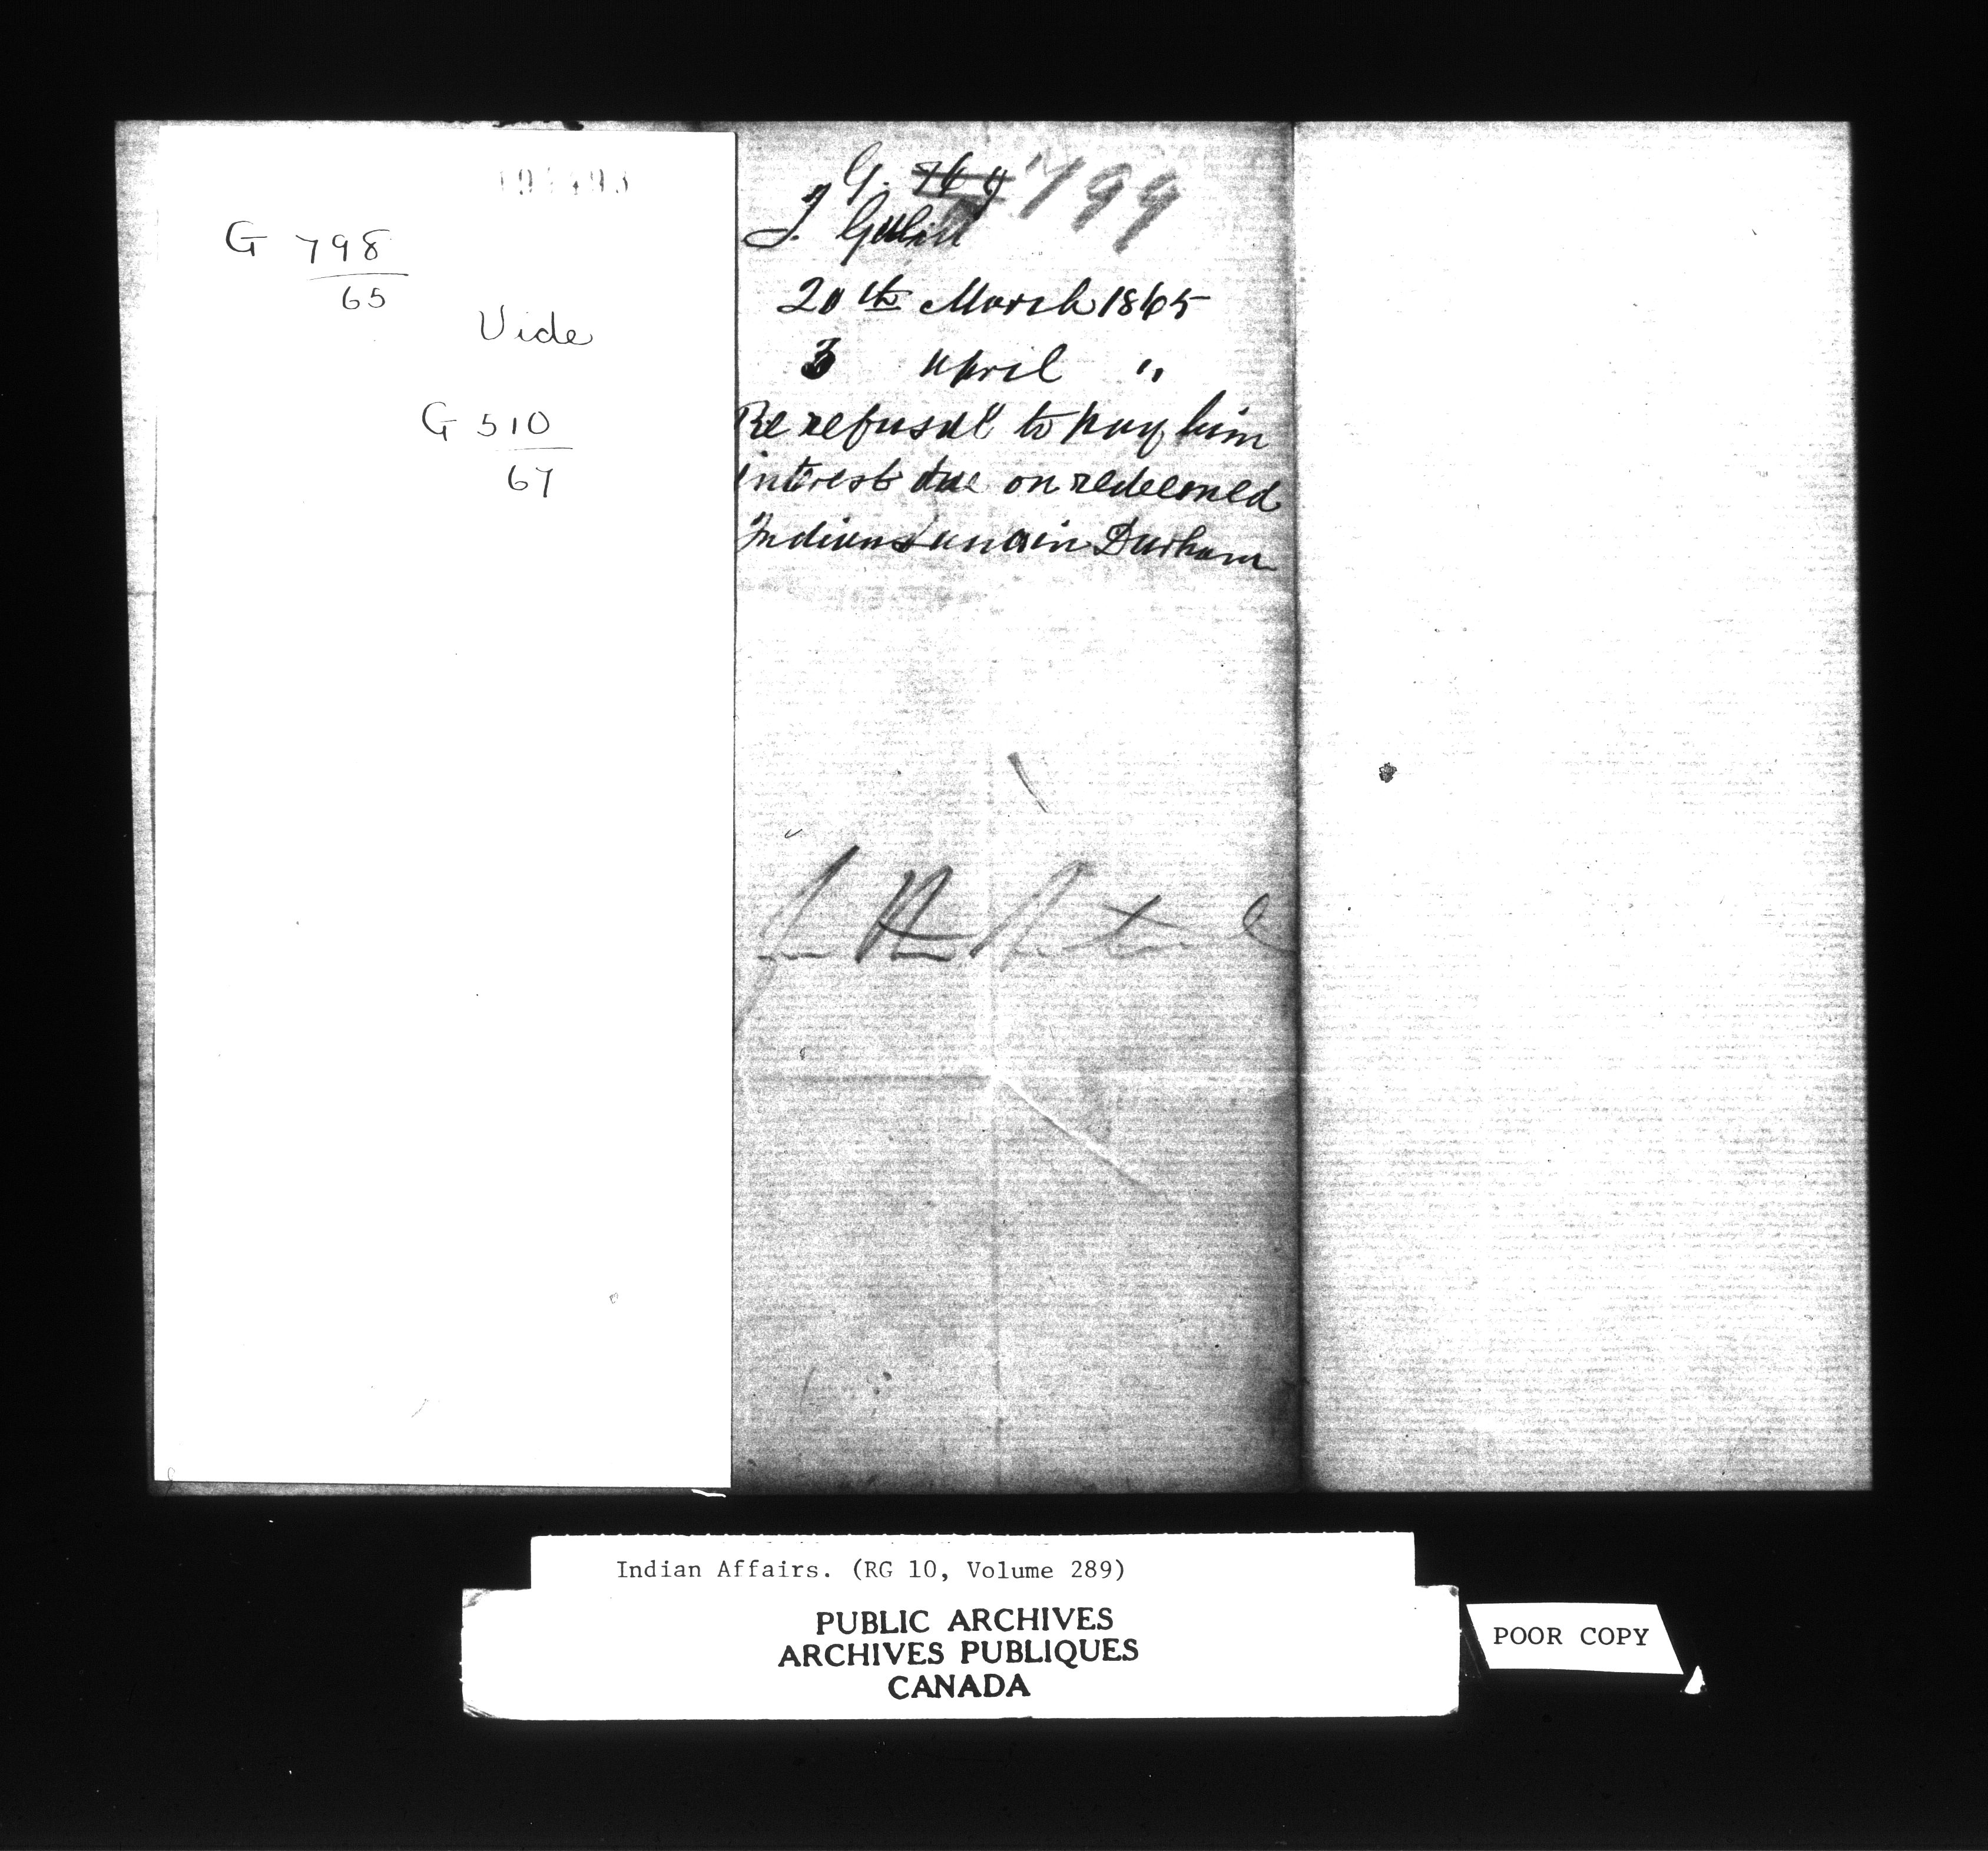 G 798
65
Vide
G 510
67
G. 799
J.
20th March 1865
3 April "
Re refusal to pay him
interest due on redeemed
Indian in Durham
Indian Affairs. (RG 10, Volume 289)
PUBLIC ARCHIVES
ARCHIVES PUBLIQUES
CANADA
POOR COPY